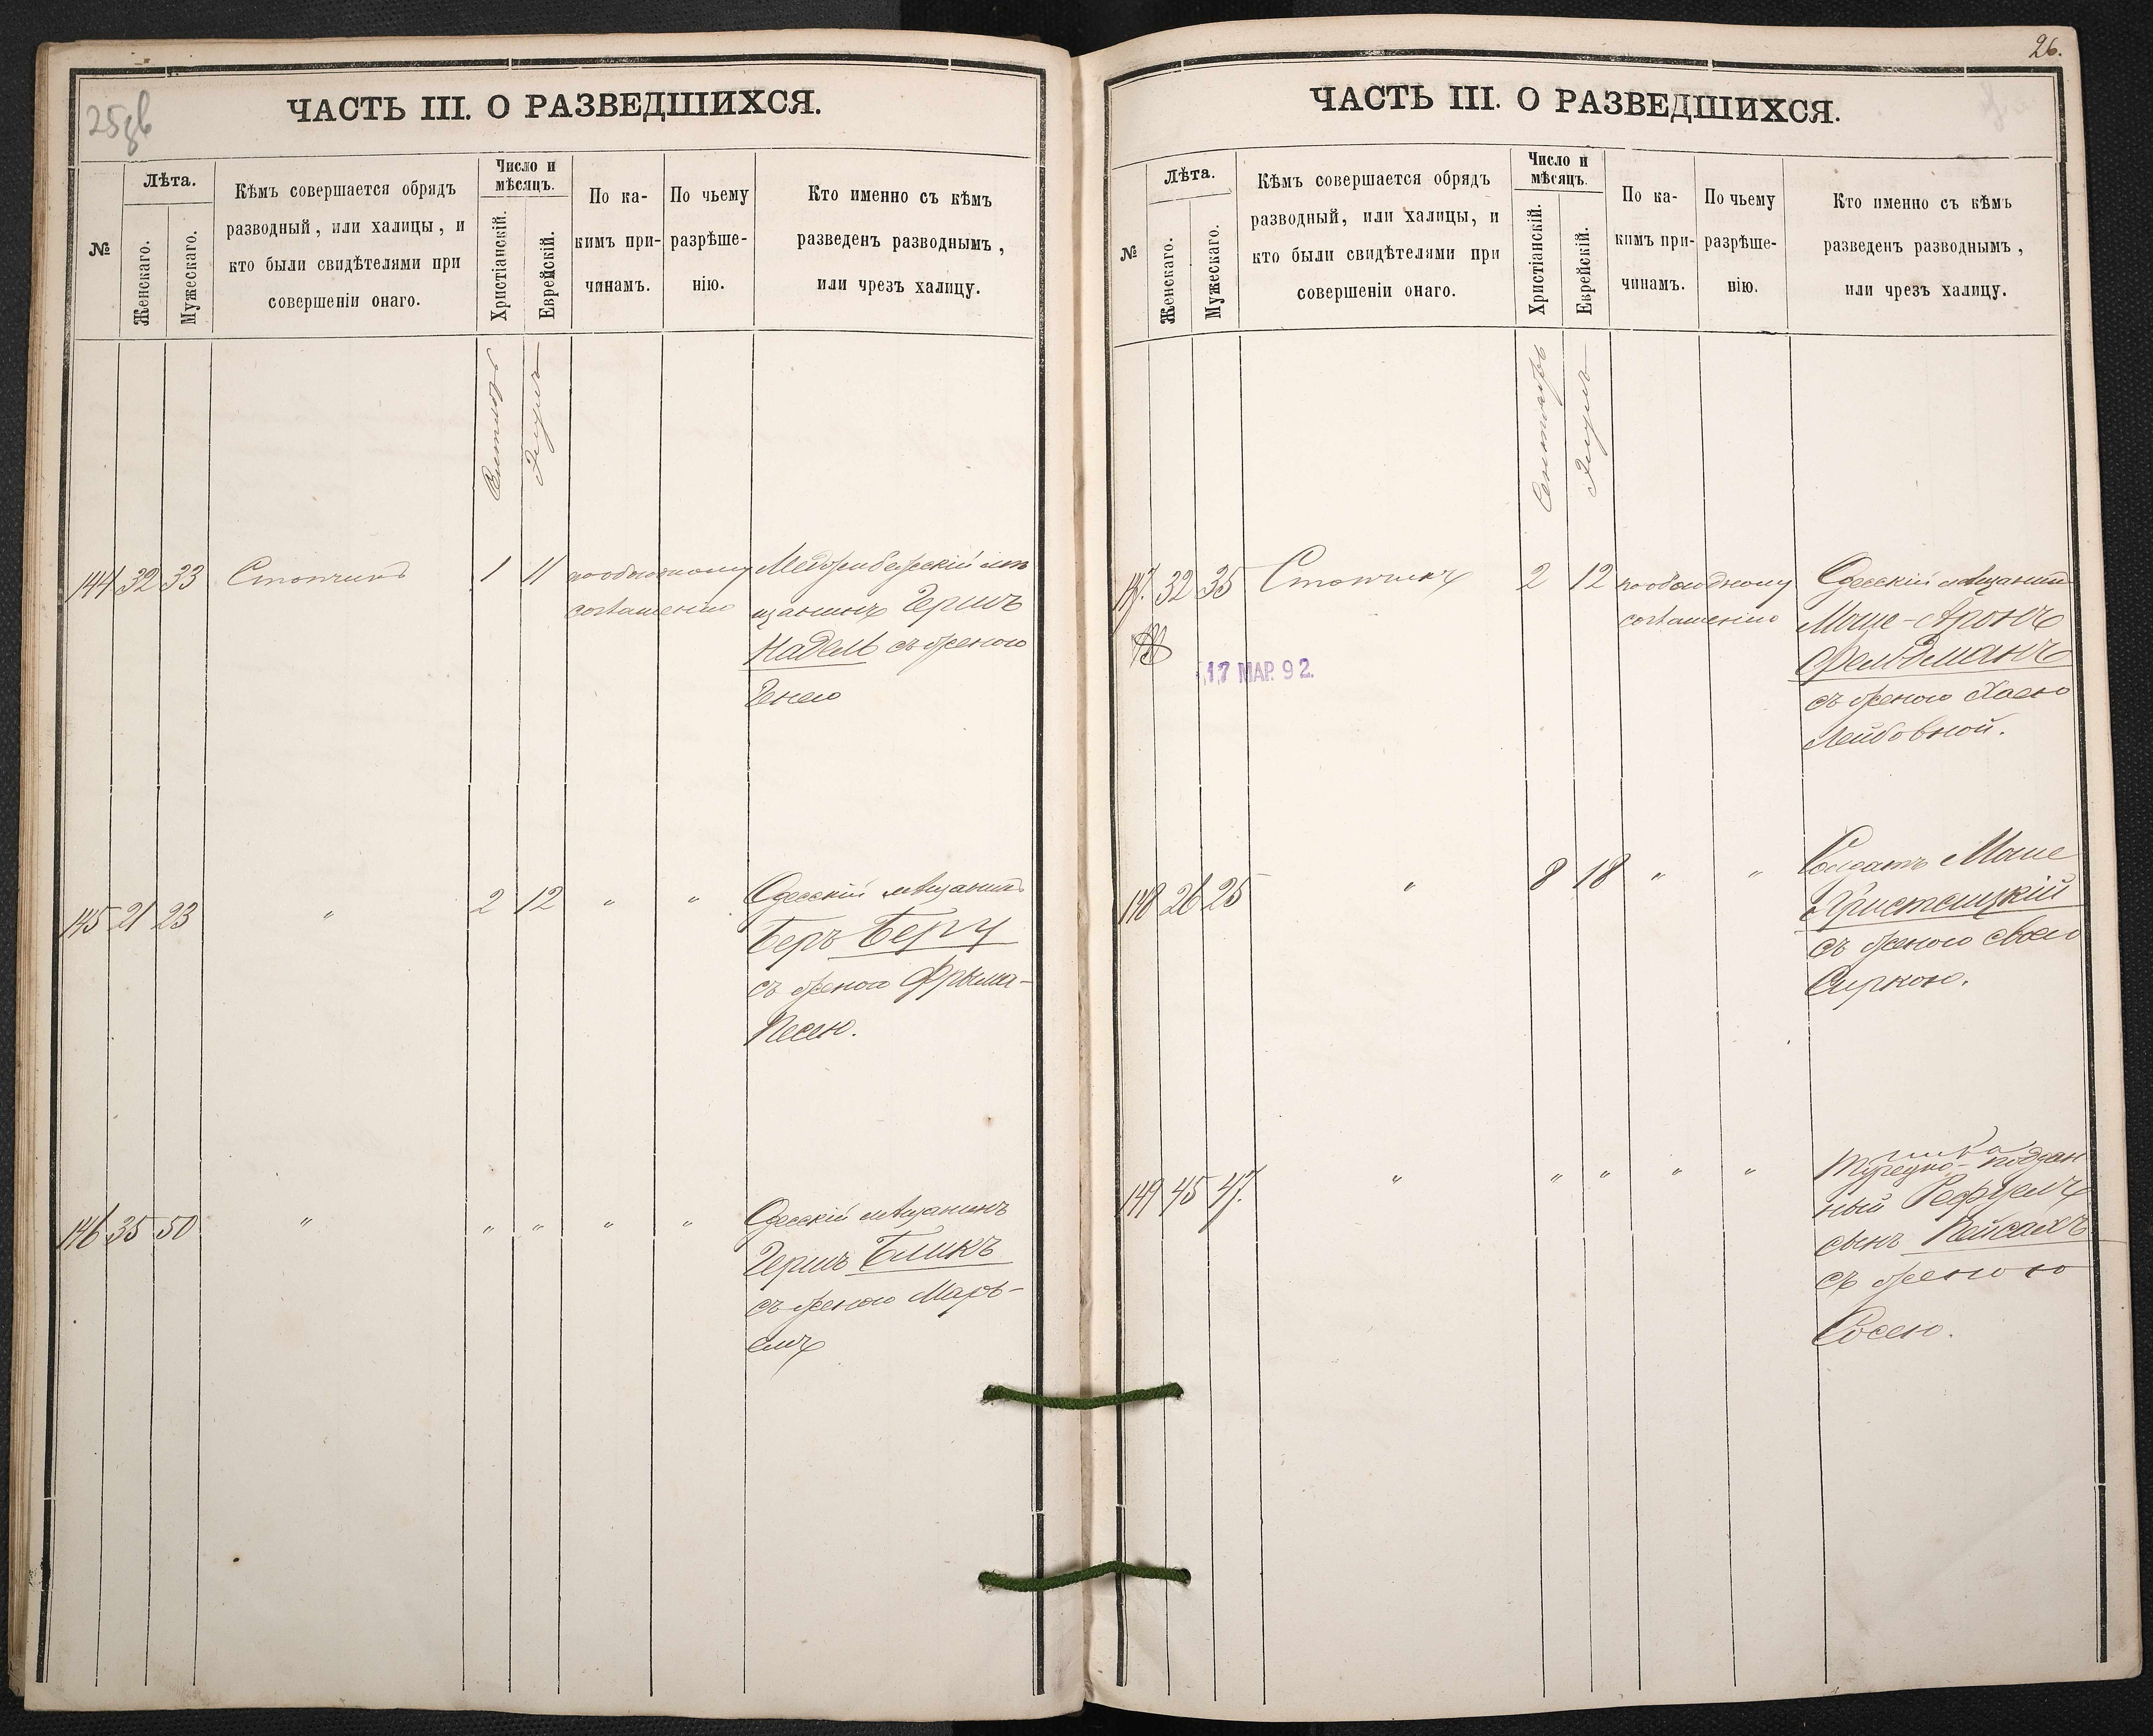 25зв
ЧАСТЬ III. О РАЗВЕДШИХСЯ.
№
Лѣта.
Женскаго.
Мужескаго.
Кѣмъ совершается обрядъ
разводный, или халицы, и
кто были свидѣтелями при
совершеніи онаго.
Число и
мѣсяцъ.
Христіанскій.
Еврейскій.
По ка-
кимъ при-
чинамъ.
По чьему
разрѣше-
нію.
Кто именно съ кѣмъ
разведенъ разводнымъ,
или чрезъ халицу.
Сентябрь
Элулъ
144 32 33 Стопчикъ 1 11 по обоюдному
согласенію
Меджибожскій мѣ
щанинъ Гершъ
Надель съ женою
Генею
145 21 23 " 2 12 " "
Одесскій мѣщанинъ
Беръ Бергъ
съ женою Фрыма-
Песею.
146 35 50 " " " " "
Одесскій мѣщанинъ
Гершъ Бликъ
съ женою Марь-
емъ
26.
ЧАСТЬ III. О РАЗВЕДШИХСЯ.
№
Лѣта.
Женскаго.
Мужескаго.
Кѣмъ совершается обрядъ
разводный, или халицы, и
кто были свидѣтелями при
совершеніи онаго.
Число и
мѣсяцъ.
Христіанскій.
Еврейскій.
По ка-
кимъ при-
чинамъ.
По чьему
разрѣше-
нію.
Кто именно съ кѣмъ
разведенъ разводнымъ,
или чрезъ халицу.
Сентябрь
Элулъ
147. 32 35 Стопчикъ 2 12 по обоюдному
согласенію
17 МАР. 92.
Одесскій мѣщанинъ
Моше-Аронъ
Фельдманъ
съ женою Хаею
Лейбовной.
148 26 25 " 8 18 " "
Солдатъ Моше
съ женою своею
Сиркою.
149 45 47. " " " " "
Турецко-поддан
ный Рефуелъ
сынъ Пейсахъ
съ женою
Сосею.